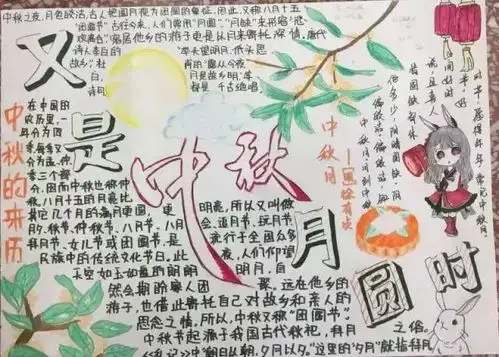 中秋之夜,月色皎洁,古人把圆月视为团圆的象征,因此,又称八月十五
为"团圆节"。古往今来,人们常用"月圆""月缺"来形容"悲
欢离合",客居他乡的游子更是以月来寄托深情。唐代
诗人李白的"举头望明月,低头思
故乡",杜甫的"露从今夜
白,月是故乡明"等
诗句都是千古绝唱
又是中秋月圆时
中秋的来历
在中国的
农历里,一
年分为四
季,每季又
分为孟、仲、
季三个部
分,因而中秋也称仲
秋。八月十五的月亮比
其它几个月的满月更圆,更
明亮,所以又叫做
月夕,秋节,仲秋节、八月节、八月
会、追月节、玩月节、
拜月节、女儿节或团圆节,是
流行于全国众多
民族中的传统文化节日。此
夜,人们仰望
天空如玉如盘的朗朗
明月,自
然会期盼家人团
聚。远在他乡的
游子,也借此寄托自己对故乡和亲人的
思念之情。所以,中秋又称"团圆节"。
中秋节起源于我国古代秋祀,拜月
之俗。
《礼记》中"朝日以朝,夕月以夕。"这里的"夕月"就指拜月
中秋月